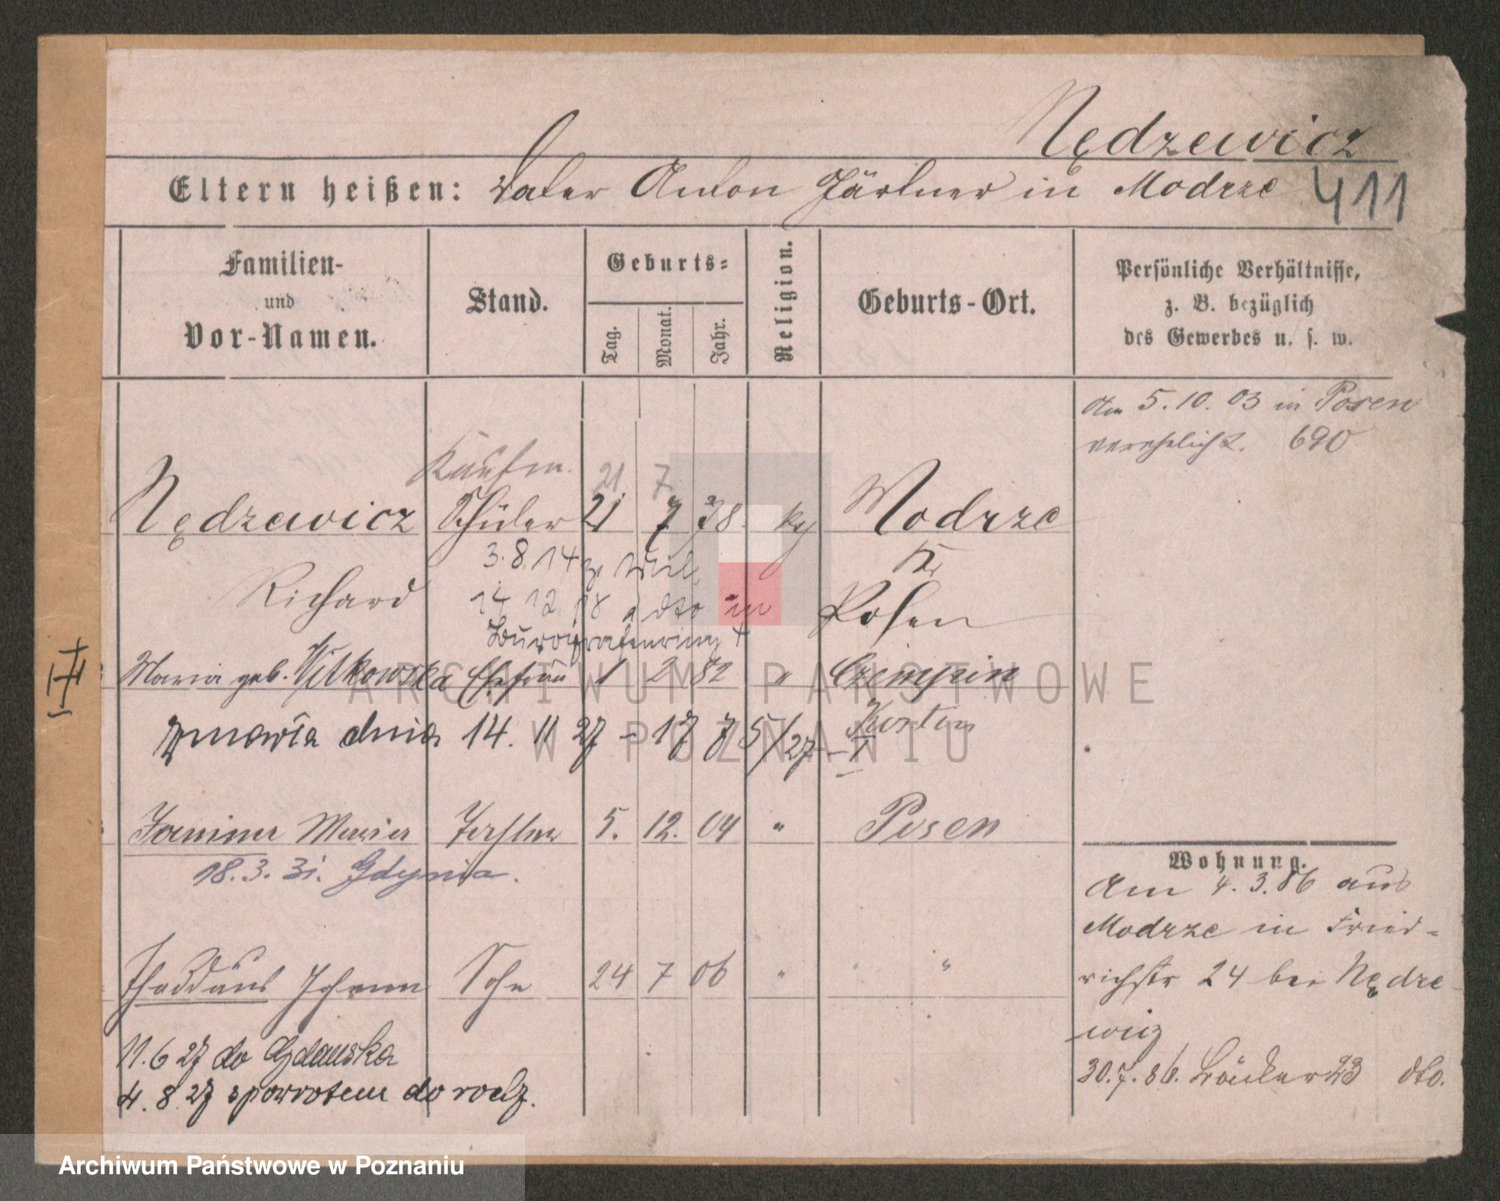 Nędzewicz
Eltern heißen: Vater Anton Gärtner in Modrze 411
Familien- und Vor-Namen.
Stand.
Geburts-
Tag.
Monat.
Jahr.
Religion.
Geburts-Ort.
Persönliche Verhältnisse,
z. B. bezüglich
des Gewerbes u. s. w.
Am 5.10.03 in Posen
verehelicht. 690
Kaufm. 21 7
Nędzewicz Schüler 21 7 78 k Modrze
3.8.14 z Kr
Richard 14 12 18 dto in Posen
Maria geb. Witkowska Ehefrau 1 2 82 " Czempin
zmarła dnia 14. 11 27 - 17 75/27 - Kosten
Janina Maria Tochter 5. 12. 04 " Posen
18.3.31. Gdynia.
Wohnung.
Am 4.3.86 aus
Modrze in Fried-
richstr 24 bei Nędze
wicz
30.7.86. Bäcker 23 dto.
Thaddäus Johann Sohn 24 7 06 " " "
11.6 27 do Gdańska
4.8.27 spowrotem do rodz.
ARCHIWUM PAŃSTWOWE
W POZNANIU
Archiwum Państwowe w Poznaniu